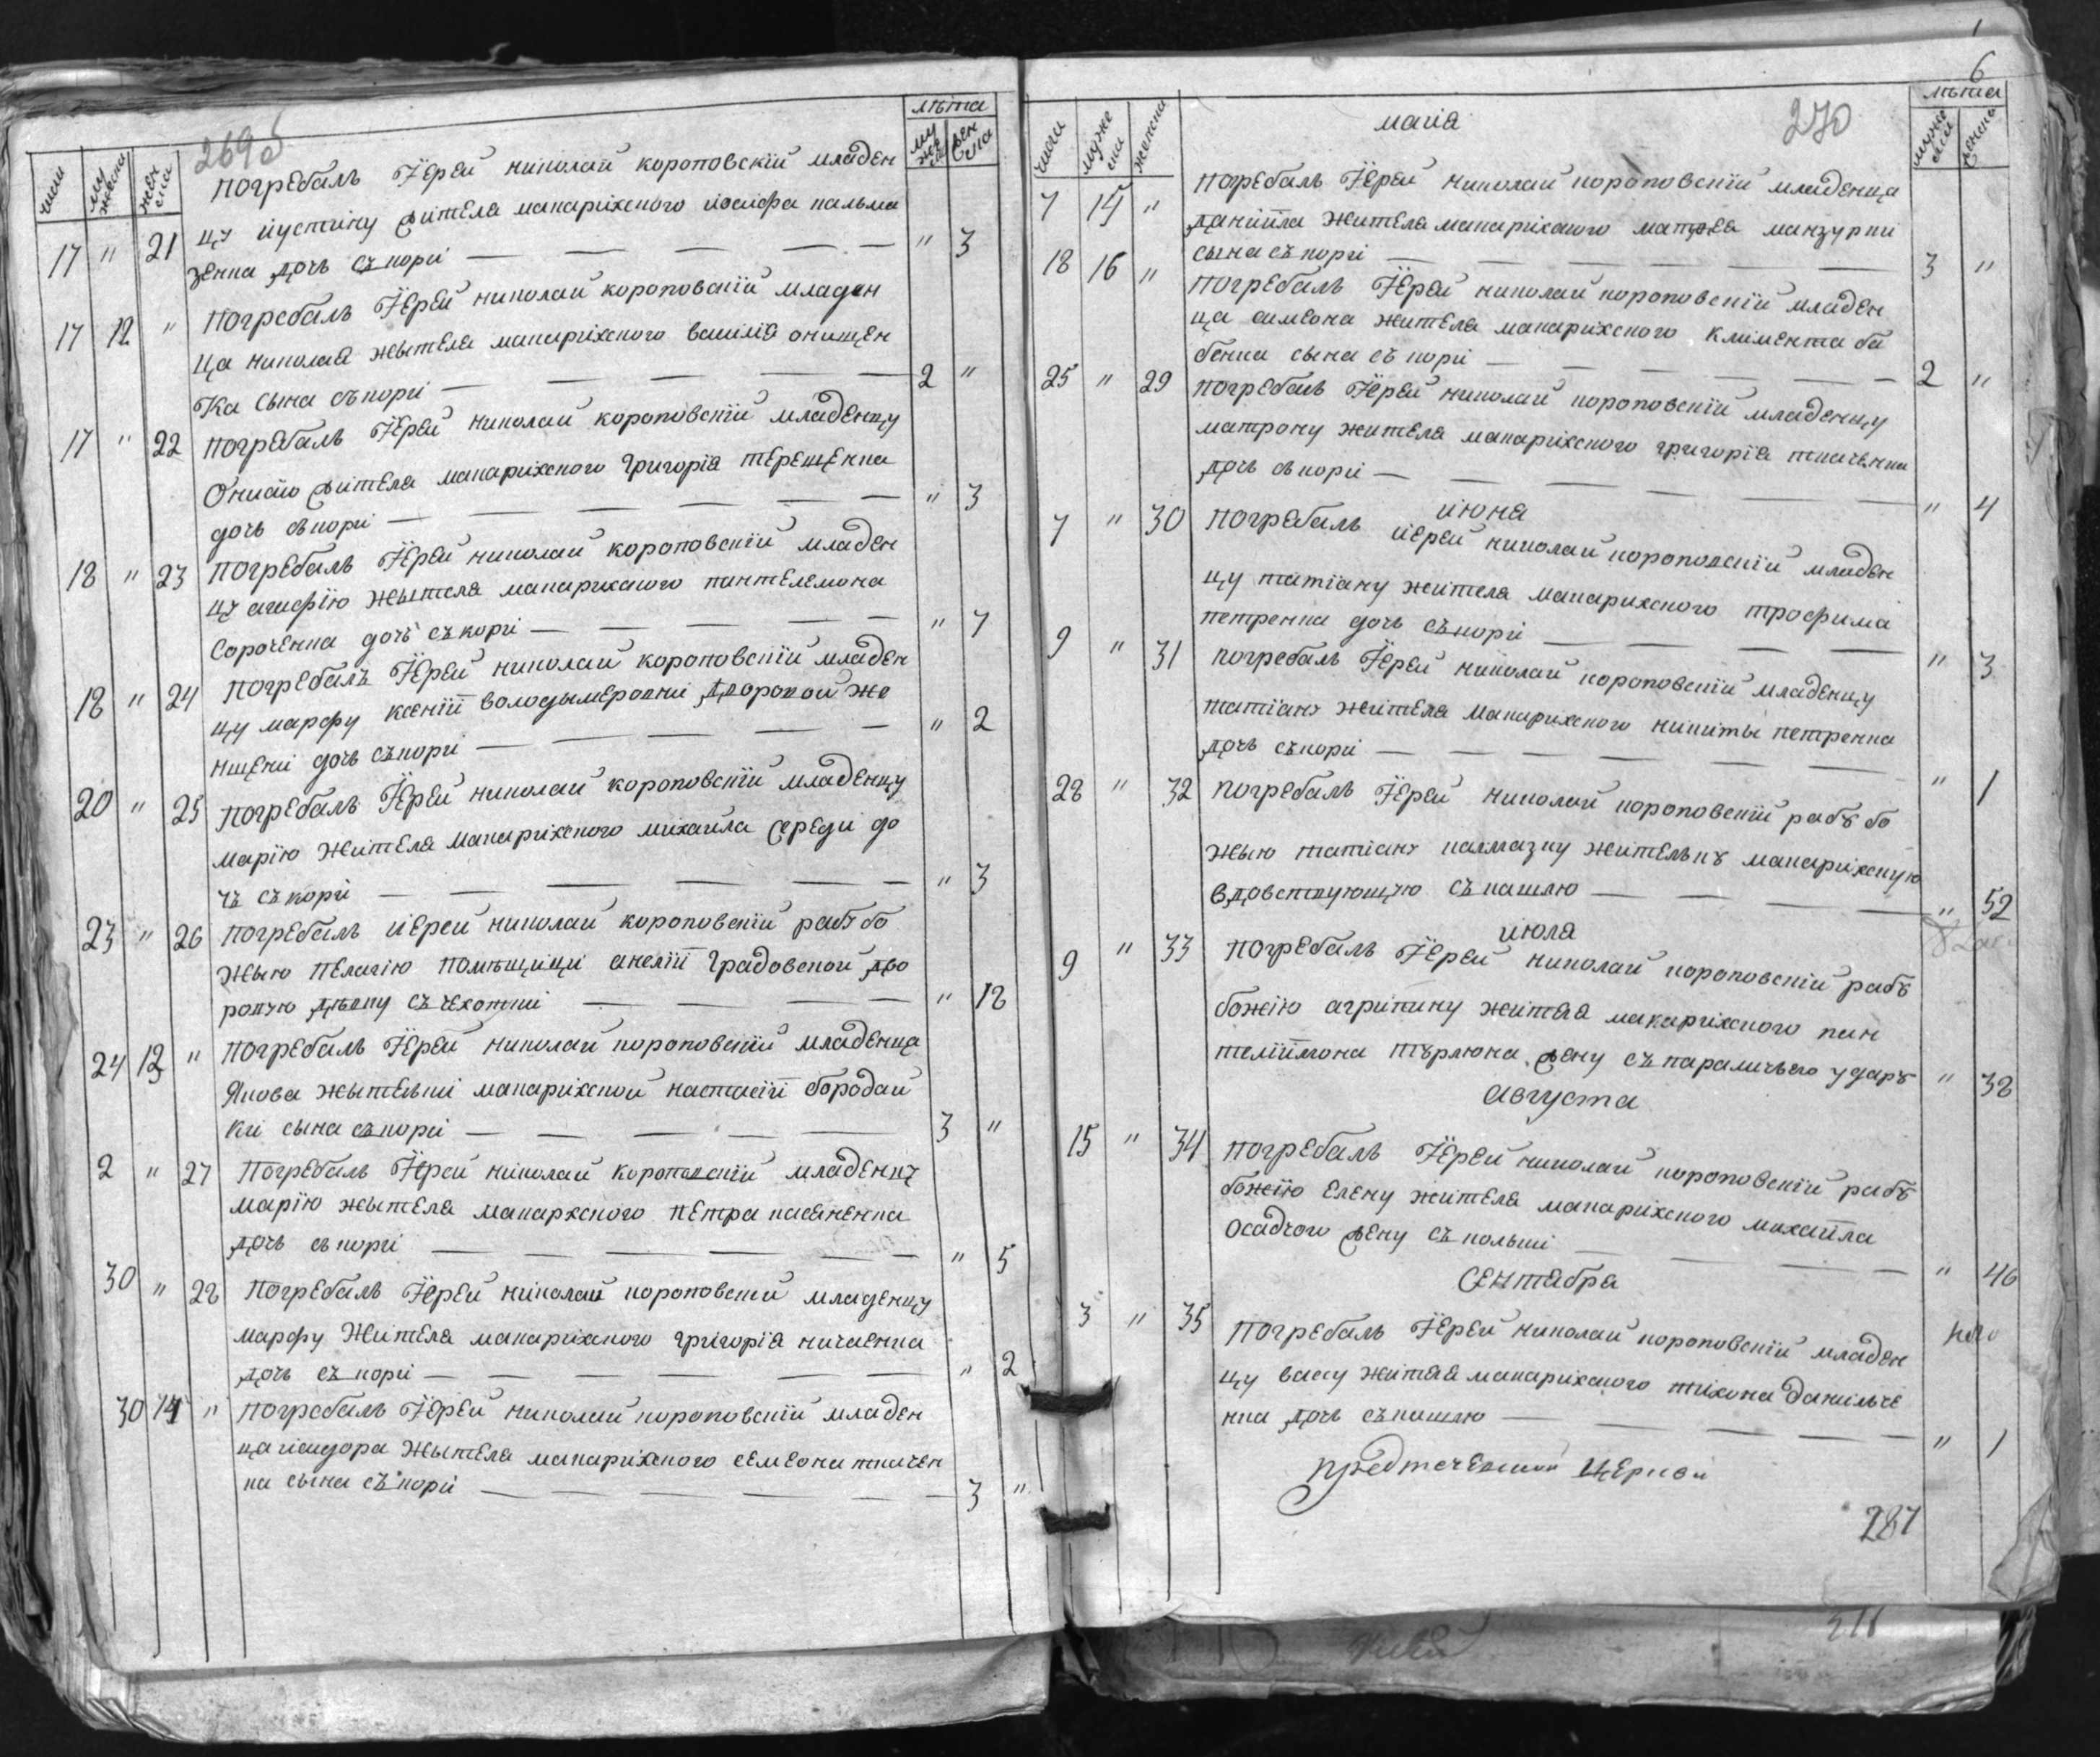 269 об
числа
мужеска
женска
лѣта
мужеска
женска
погребалъ Іерей николай короповскій младен
17 " 21 цу иустину жителя макарихского иосифа кальма
зенка дочь съ корі — — — — " 3
погребалъ Іерей николай короповскій младен
17 12 " ца николая жытеля макарихского василия онищен
ка сына съ корі — — — — 2 "
17 " 22 погребалъ Іерей николай короповскій младенцу
жителя макарихского григорія терещенка
дочь съ корі — — — — " 3
18 " 23 погребалъ Іерей николай короповскій младен
цу агафію жытеля макарихского пантелемона
сороченка дочь съ корі — — — — " 7
18 " 24 погребалъ Іерей николай короповскій младен
цу марфу ксеніи володымеровни дворовой же
нщені дочь съ корі — — — — " 2
20 " 25 погребалъ Іерей николай короповскій младенцу
марію жителя макарихского михаила середи до
чь съ корі — — — — " 3
23 " 26 погребалъ иерей николай короповскій рабу бо
жыю пелагію помѣщиці анеліи градовской дво
ровую дѣвку съ чехоткі — — — " 18
24 13 " погребалъ Іерей николай короповскій младенца
якова жытелькі макарихской настасіи бородай
ки сына съ корі — — — — 3 "
2 " 27 погребалъ Іерей николай короповскій младенцу
марію жытеля макархского петра касяненка
дочь съ корі — — — — " 5
30 " 28 погребалъ Іерей николай короповскій младенцу
марфу жителя макарихского григорія ничаенка
дочь съ корі — — — — " 2
30 14 " погребалъ Іерей николай короповскій младен
ца ісидора жытеля макарихского семеона ткачен
ка сына съ корі — — — — 3 "
6
270
числа
мужеска
женска
маия
лѣта
мужеска
женска
7 15 " погребалъ Іерей николай короповскій младенца
даниила жителя макарихского матфея манзурки
сына съ корі — — — — 3 "
18 16 " погребалъ Іерей николай короповскій младен
ца симеона жителя макарихского климента ба
бенка сына съ корі — — — — 2 "
25 " 29 погребалъ Іерей николай короповскій младенцу
матрону жителя макарихского григорія ткаченка
дочь съ корі — — — — " 4
июня
7 " 30 погребалъ иерей николай короповскій младен
цу татіану жителя макарихского трофима
петренка дочь съ корі — — — — " 3
9 " 31 погребалъ Іерей николай короповскій младенцу
татіану жителя макарихского никиты петренка
дочь съ корі — — — — " 1
28 " 32 погребалъ Іерей николай короповскій рабу бо
жыю татіану калмазку жительку макарихскую
вдовствующую съ кашлю — — — " 52
июля
9 " 33 погребалъ Іерей николай короповскій рабу
божію агрипину жителя макарихского пан
телиймона жену съ параличъего удару " 38
августа
15 " 34 погребалъ Іерей николай короповскій рабу
божію елену жителя макарихского михаила
осадчого жену съ кольки — — — " 46
сентября
3 " 35 погребалъ Іерей николай короповскій младен
цу вассу жителя макарихского тихона данильче
нка дочь съ кашлю — — — — " 1
предтечевской церкви
287